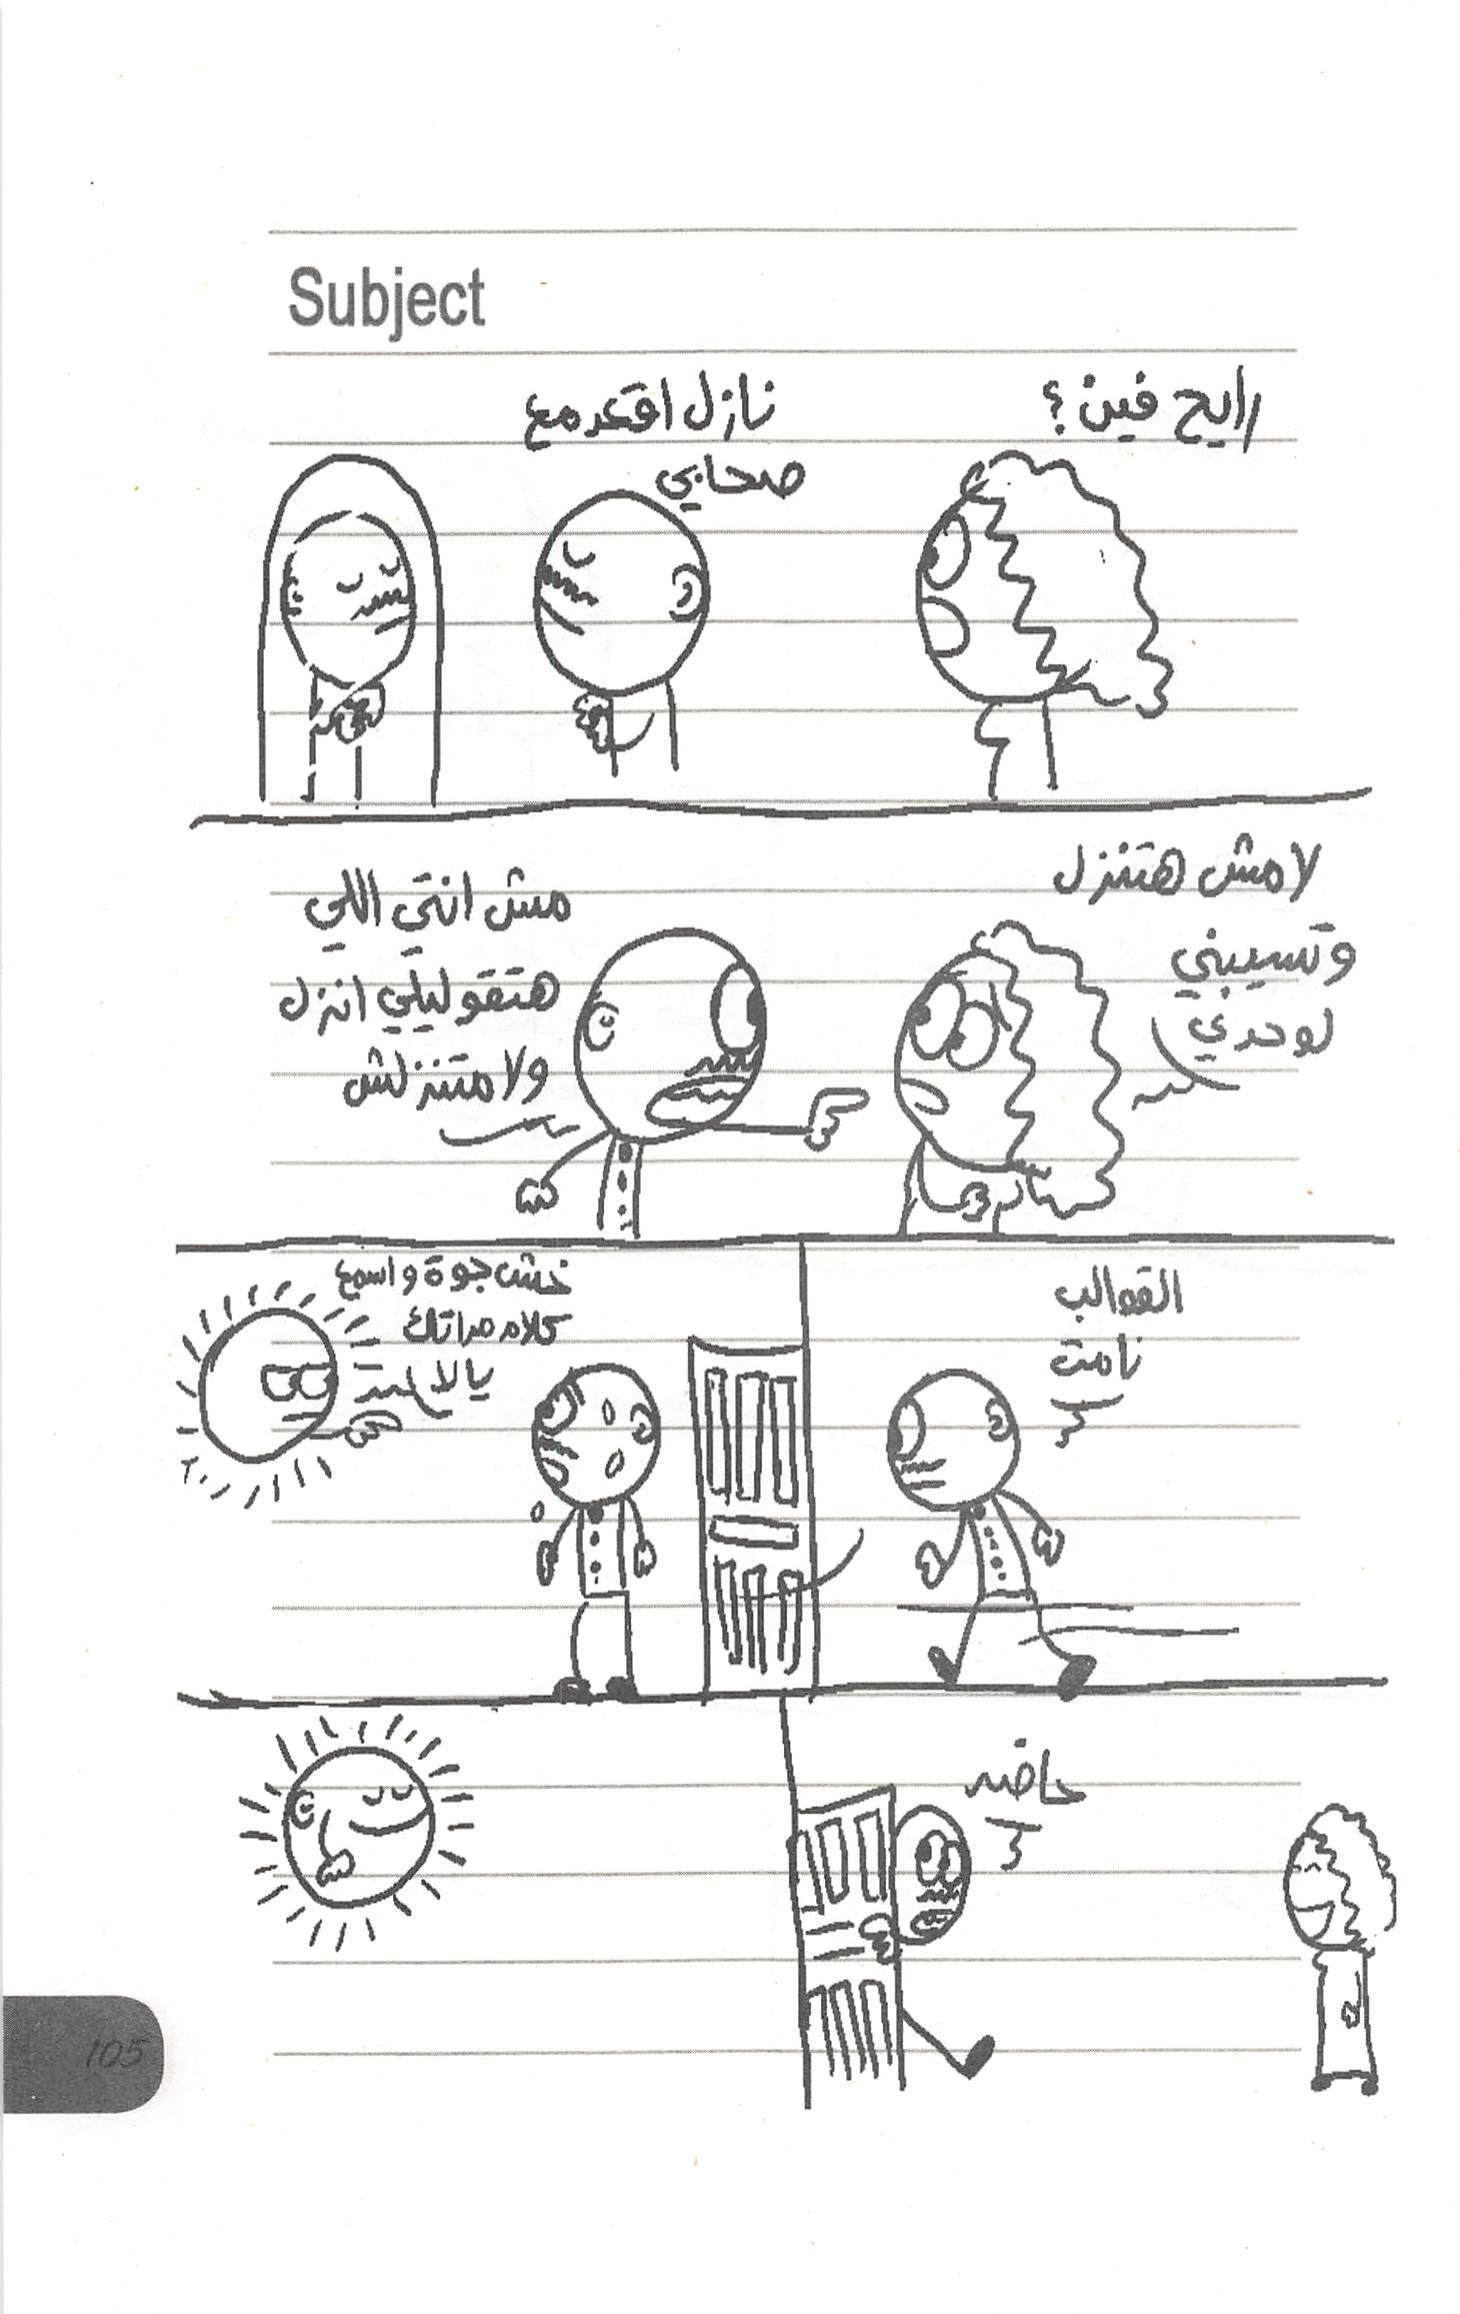 Subject
رايح فين؟
نازل اقعد مع
صحابي
لا مش هتنزل
وتسيبني
لوحدي
مش انتي اللي
هتقوليلي انزل
ولا متنزلش
القوالب
نامت
خش جوة واسمع
كلام مراتك
يالا
حاضر
105